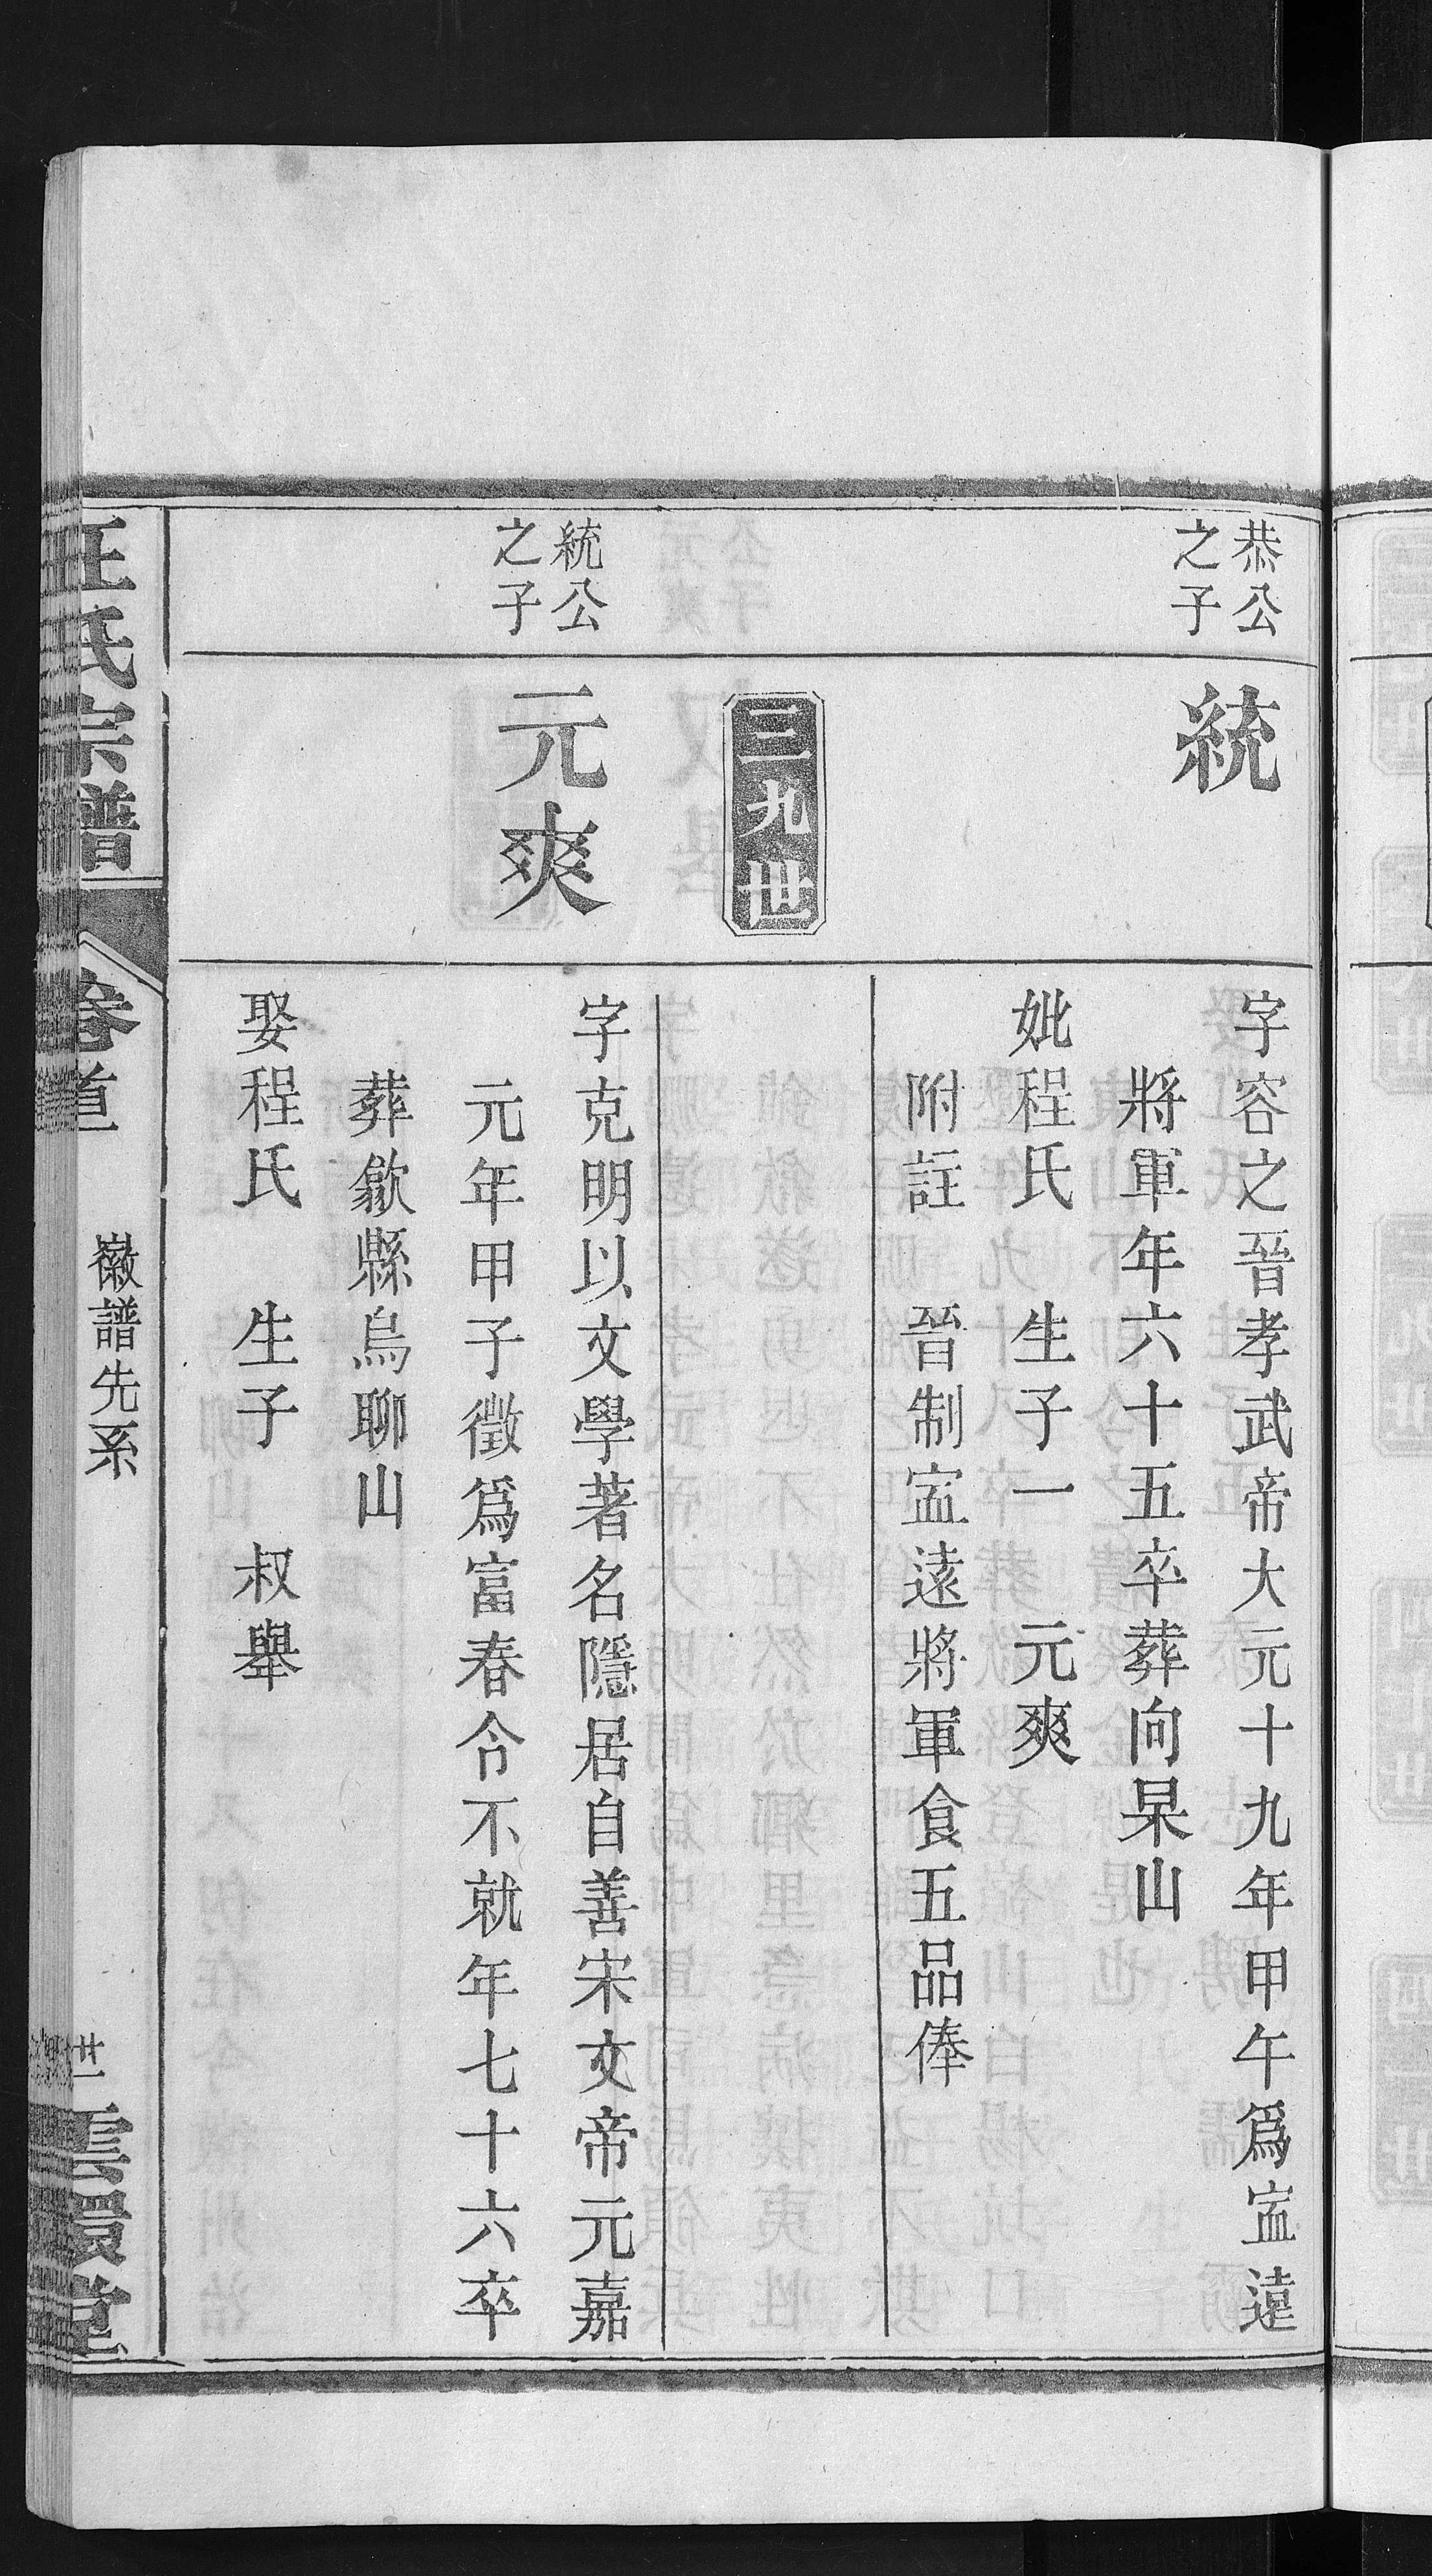 恭公
之子
統
字容之晉孝武帝大元十九年甲午爲寍遠
將軍年六十五卒葬向杲山
妣程氏　生子一　元爽
附註　晉制寍遠將軍食五品俸
三九世
統公
之子
元爽
字克明以文學著名隱居自善宋文帝元嘉
元年甲子徵爲富春令不就年七十六卒
葬歙縣烏聊山
娶程氏　生子　叔舉
汪氏宗譜
卷首
徽譜先系
雲環堂